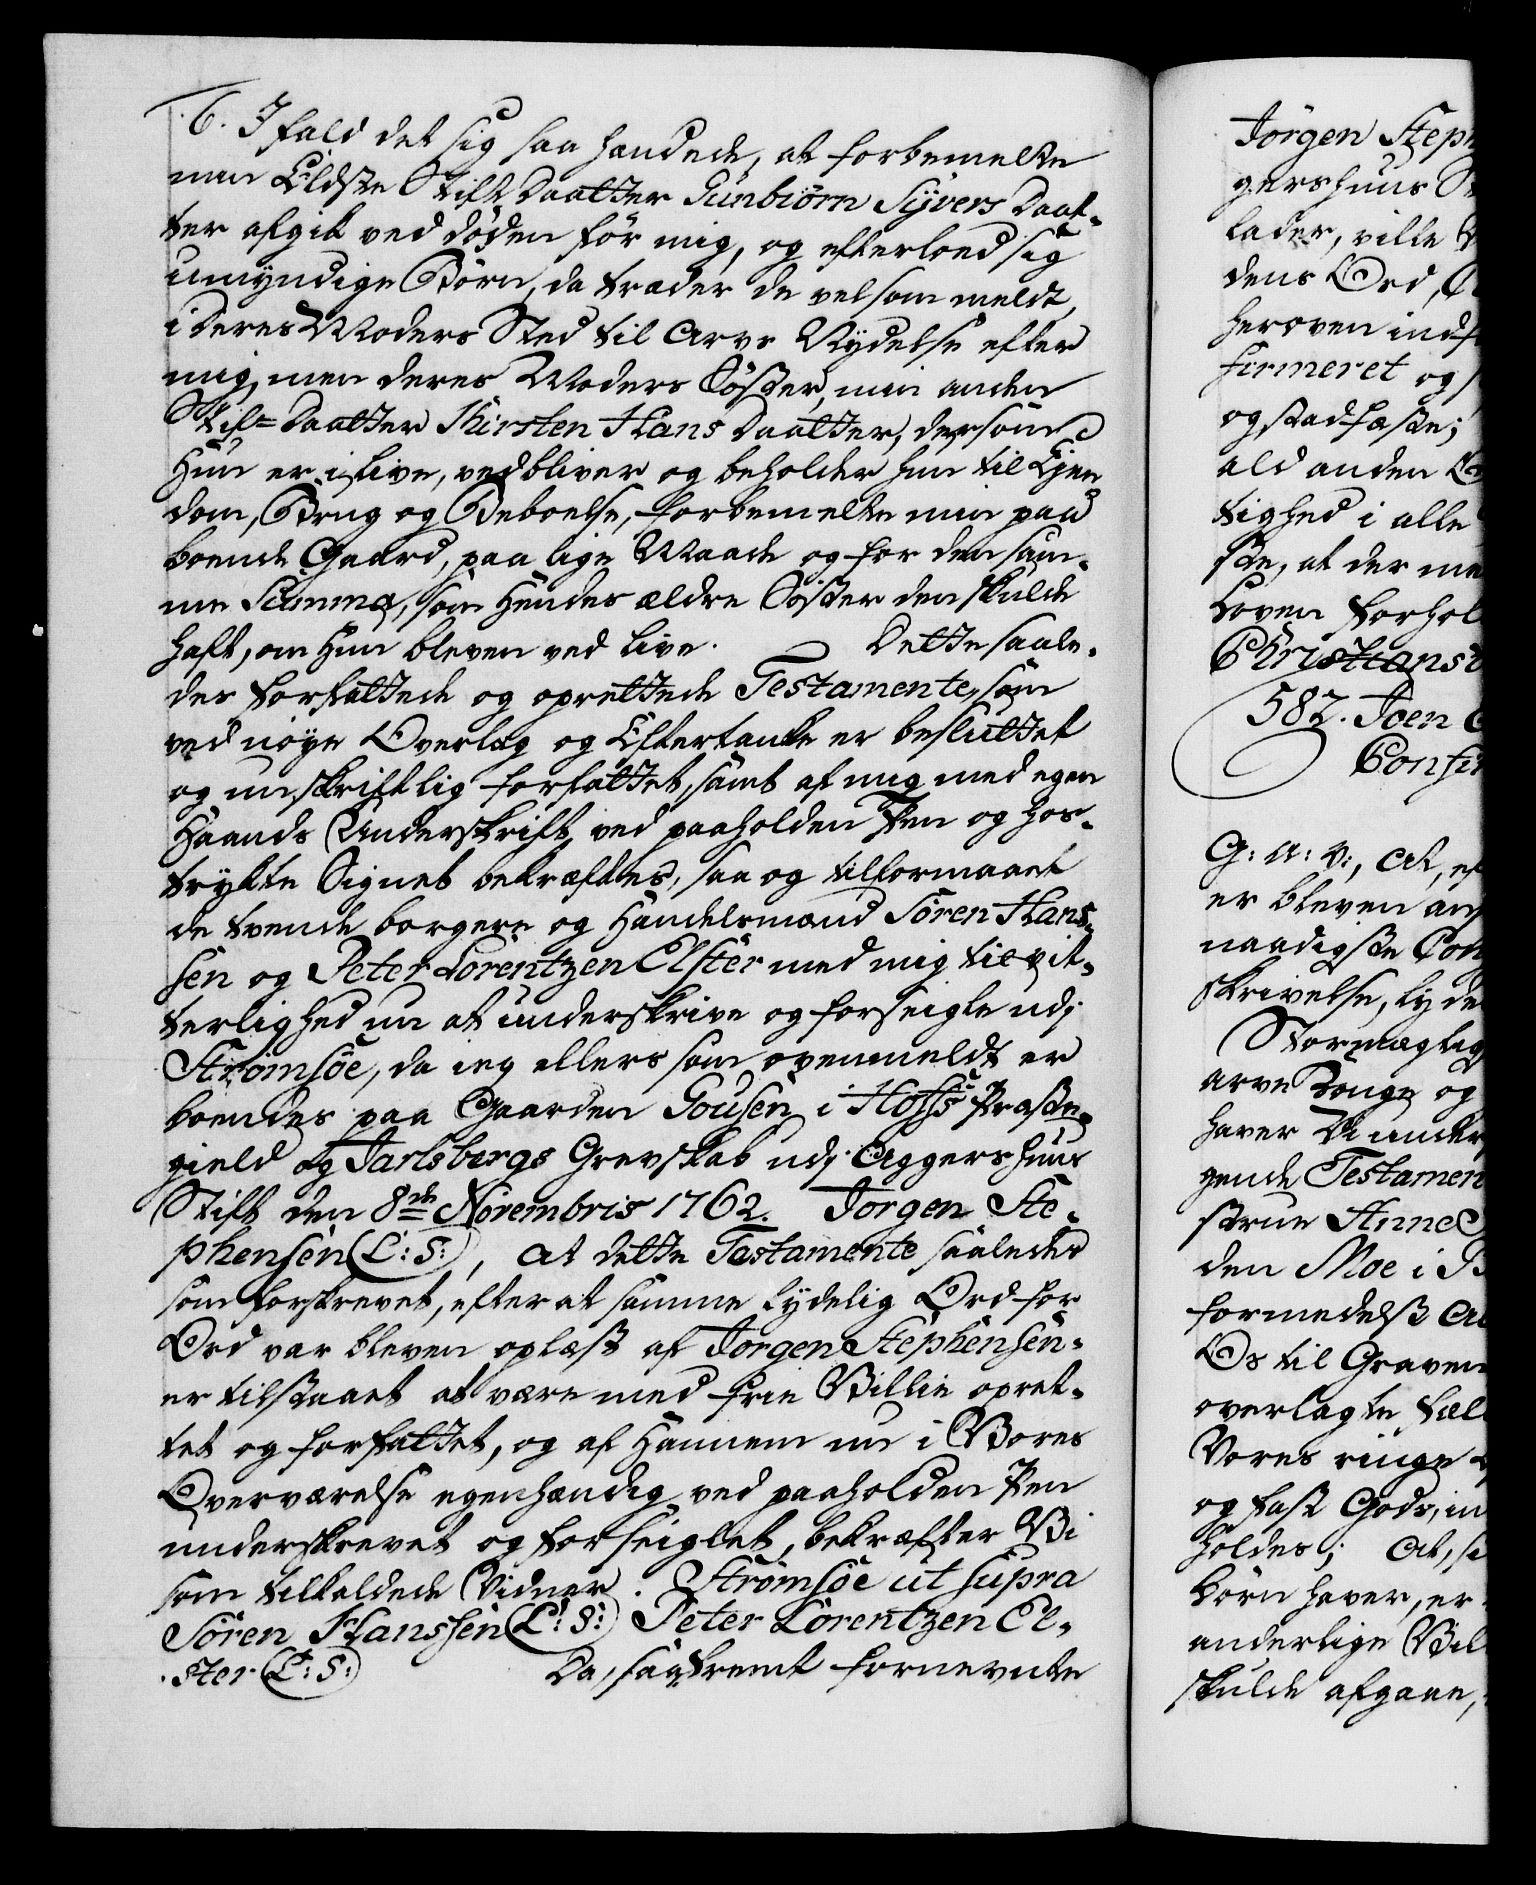 6. Ifald det sig saa hændede, at forbemelte
min Eldste Stif Daatter Gunbiørn Syvers Daat-
ter afgik ved døden før mig, og efterloed sig
umyndige Børn, da træder de vel som meldt,
i deres Moders Sted til Arvs Nydelse efter
mig, men deres Moders Søster, min anden
Stif-Daatter Kirsten Hans Daatter, dersom
Hun er i Live, vedbliver og beholder hun til Ejen-
dom, Brug og Beboelse, forbemelte min paa
boende Gaard, paa lige Maade og for den sam-
me Summa, som Hendes ældre Søster den skulde
haft, om Hun bleven ved Live. Dette saale-
des forfattede og oprettede Testamente, som
ved nøye Overlæg og Eftertanke er besluttet
og nu skriftlig forfattet, samt af mig med egen
Haands Underskrift ved paaholden Pen og hos-
trykte Signet bekræftes, saa og tilformaaet
de tvende borgere og Handelsmænd Søren Hans-
sen og Peter Lorentzen Elster med mig til vit-
terlighed nu at underskrive og forseigle udj
Strømsøe, da ieg ellers som ovenmeldt er
boendes paa Gaarden Gousen i Hoffs Præste-
gield og Jarlsbergs Grevskab udj Aggershuus
Stift den 8de Novembris 1762. Jørgen Ste-
phensen (L: S:), At dette Testamente saaledes
som forskrevet, efter at samme lydelig Ord for
Ord var bleven oplæst af Jørgen Stephensen
er tilstaaet at være med frie Villie opret-
tet og forfattet, og af Hannem nu i Vores
Overværelse egenhændig ved paaholden Pen
underskrevet og forseiglet, bekræfter Vi
som tilkaldede Vidner. Strømsøe ut supra
Søren Hanssen (L: S:) Peter Lorentzen El-
ster (L: S:) Da, saafremt fornevnte
Jørgen Steph
gershuus St
lader, ville V
dens Ord,
heroven indf
firmeret og
og stadfæste;
ald anden
tighed i alle
ste, at der me
Loven forhol
Christiansb
582. Joen
Confir
G: A: V:, At, ef
er bleven an
naadigste Con
skrivelse, lyde
Stormægtig
arve Konge og
haver Vi under
gende Testamen
strue Anne
den Moe i
formedelst Al
Os til Graven
overlagte fæl
Vores ringe
og fast Gods, in
holdes; At, si
børn haver, er
anderlige Vil
skulde afgaae,